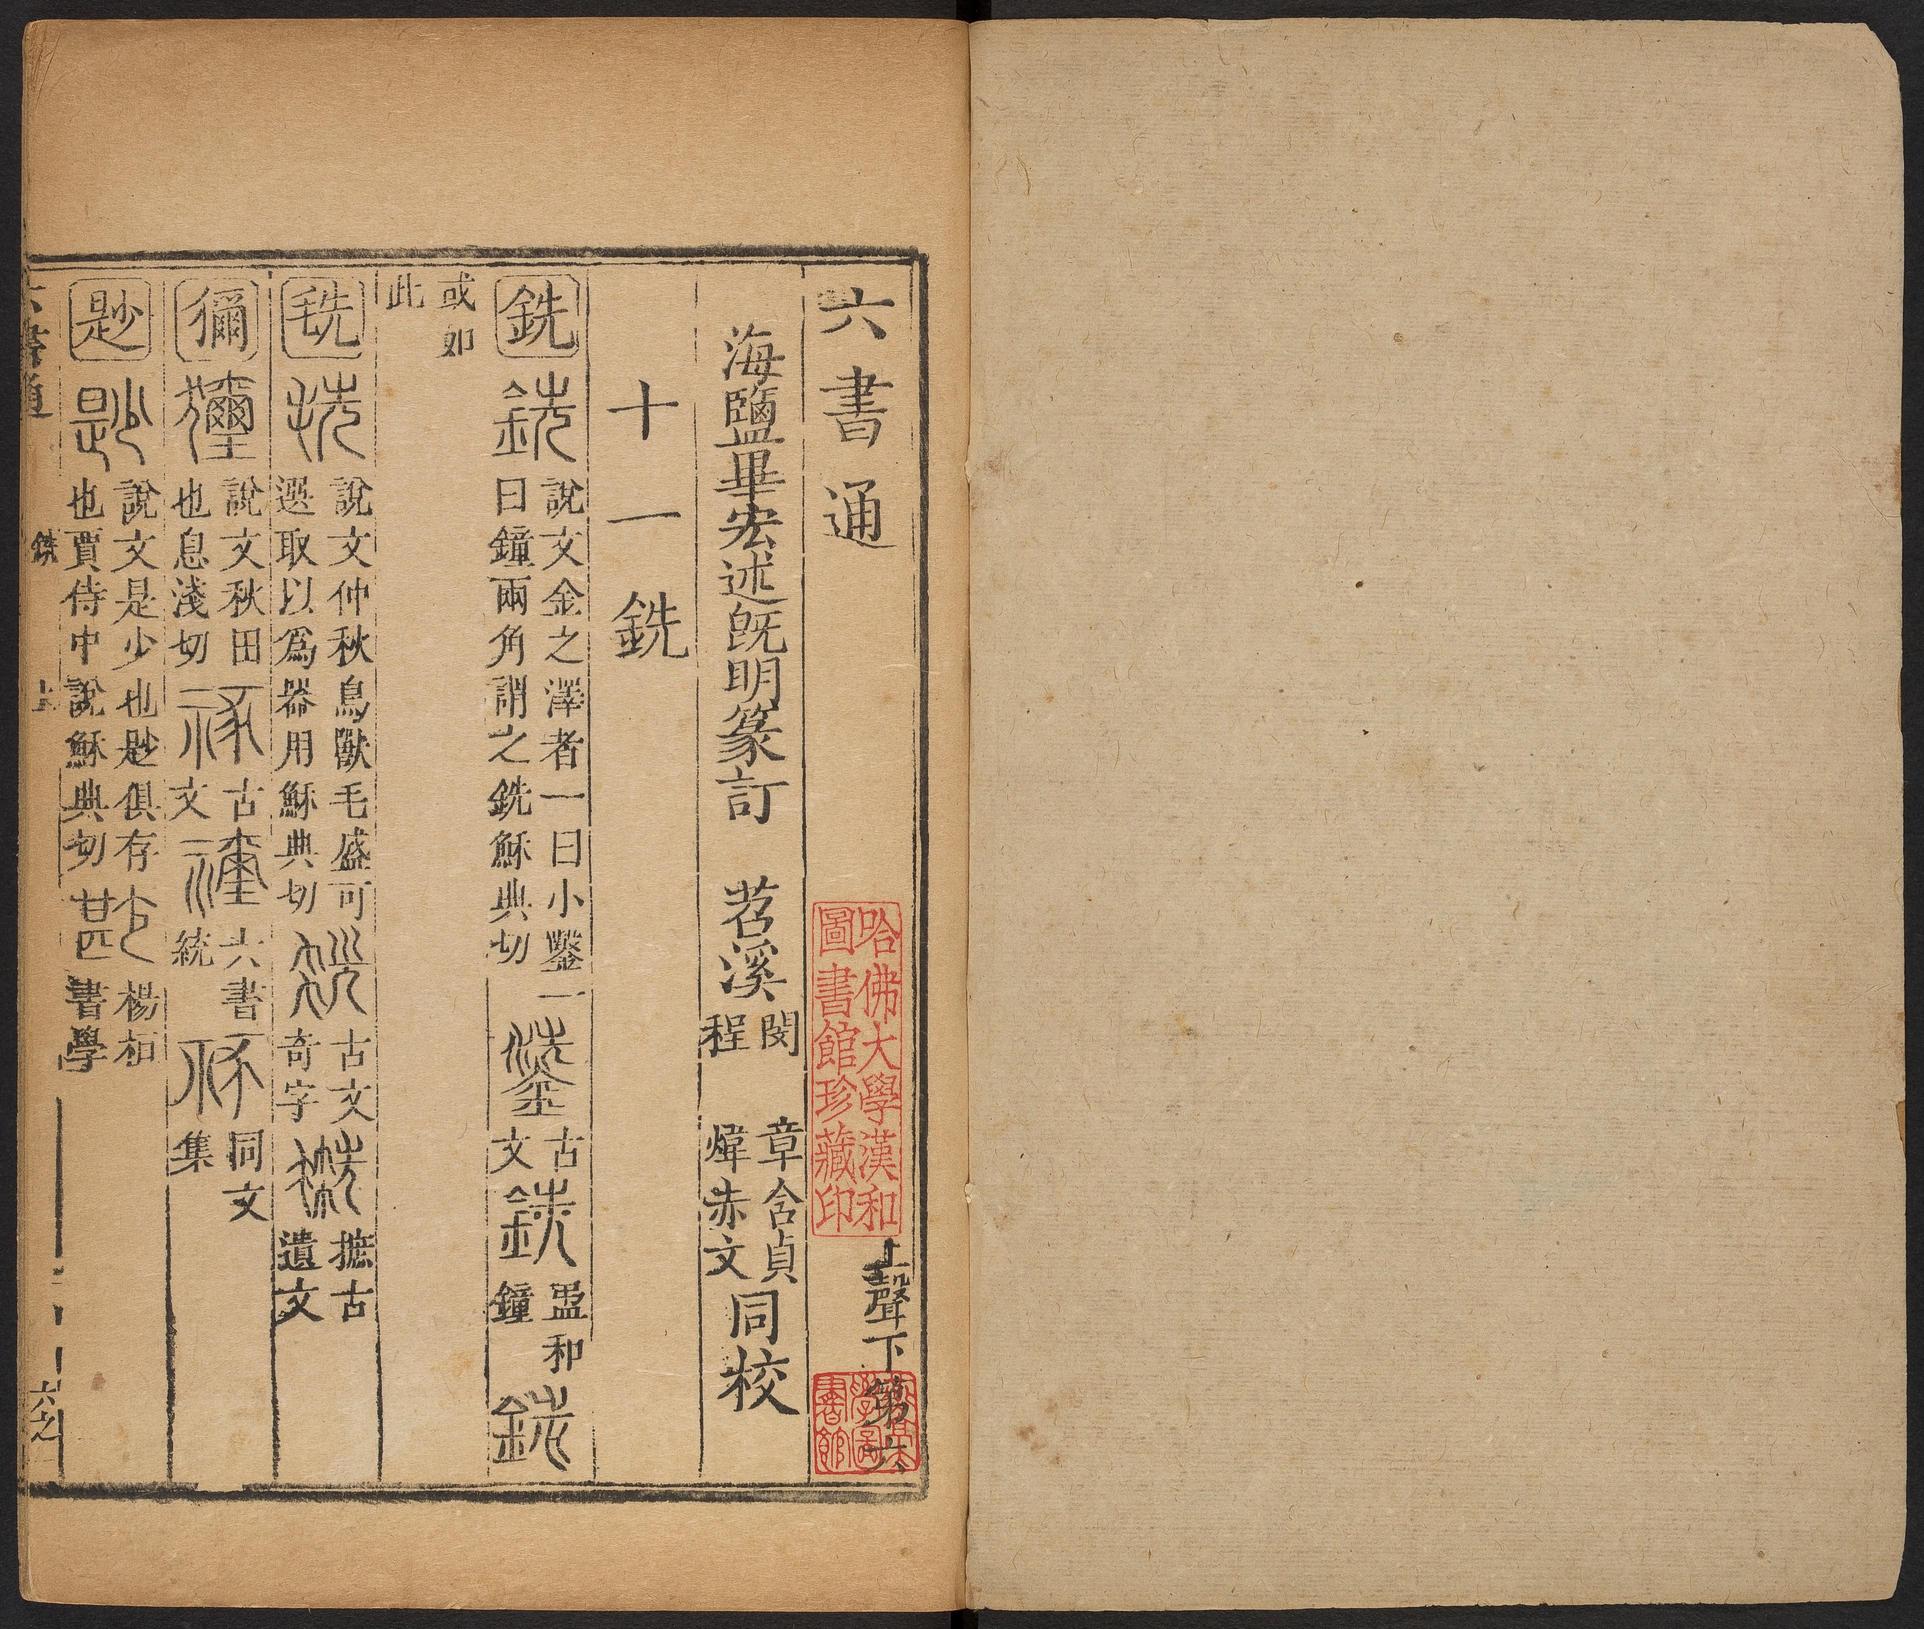 六書通
上聲下第六
哈佛大學漢和
圖書館珍藏印
海鹽畢宏述旣明篆訂 苕溪
閔 章含貞
程 煒赤文
同校
十一銑
銑 銑 說文金之澤者一曰小鑿一
曰鐘兩角謂之銑穌典切
古
文
盄和
鐘
或如
此
毨 毨 說文仲秋鳥獸毛盛可
選取以爲器用穌典切
古文
奇字
摭古
遺文
獮 玺 說文秋田
也息淺切
古
文
六書
統
同文
集
尟 尟 說文是少也尟俱存
也賈侍中說穌典切
尐 楊桓
甚 書學
六書通 銑 上 六之一